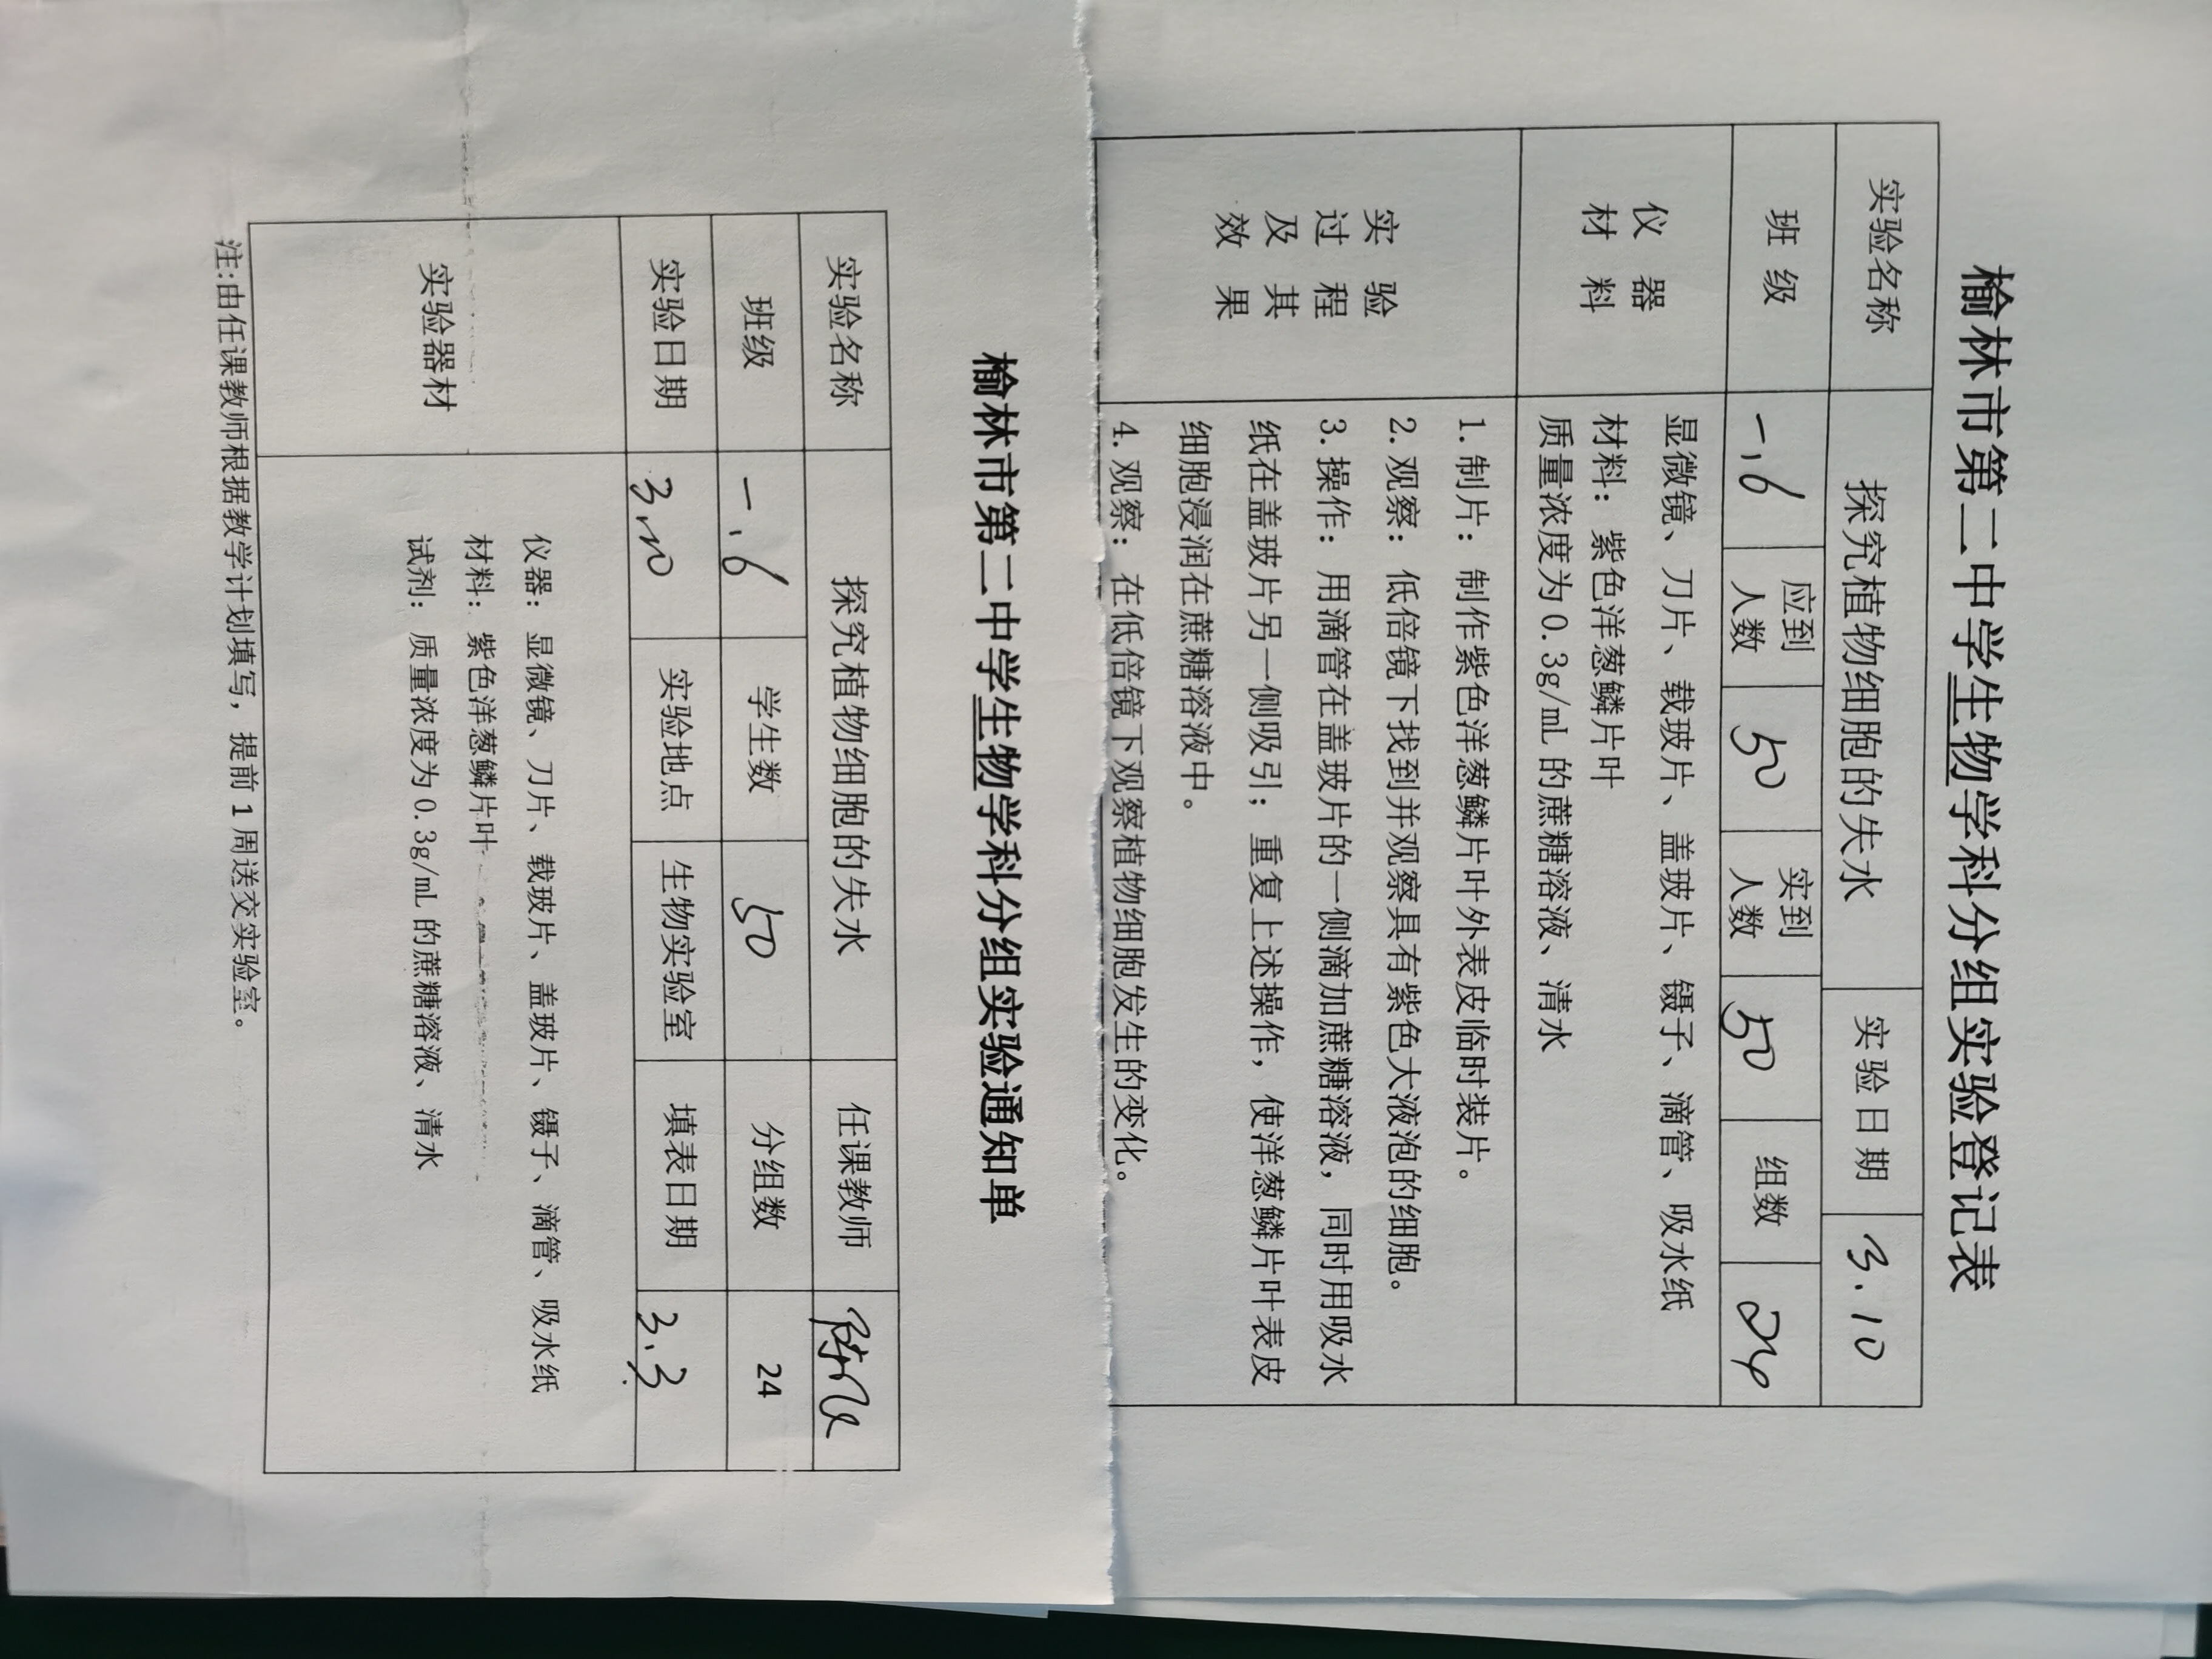 榆林市第二中学生物学科分组实验登记表
实验名称 探究植物细胞的失水 实验日期 3.10
班级 一.6 应到人数 50 实到人数 50 组数 24
仪器材料
显微镜、刀片、载玻片、盖玻片、镊子、滴管、吸水纸
材料：紫色洋葱鳞片叶
质量浓度为0.3g/mL 的蔗糖溶液、清水
实验过程及其效果
1.制片：制作紫色洋葱鳞片叶外表皮临时装片。
2.观察：低倍镜下找到并观察具有紫色大液泡的细胞。
3.操作：用滴管在盖玻片的一侧滴加蔗糖溶液，同时用吸水
纸在盖玻片另一侧吸引；重复上述操作，使洋葱鳞片叶表皮
细胞浸润在蔗糖溶液中。
4.观察：在低倍镜下观察植物细胞发生的变化。
榆林市第二中学生物学科分组实验通知单
实验名称 探究植物细胞的失水 任课教师
班级 一.6 学生数 50 分组数 24
实验日期 3.10 实验地点 生物实验室 填表日期 3.3
实验器材
仪器：显微镜、刀片、载玻片、盖玻片、镊子、滴管、吸水纸
材料：紫色洋葱鳞片叶
试剂：质量浓度为0.3g/mL 的蔗糖溶液、清水
注:由任课教师根据教学计划填写，提前1周送交实验室。